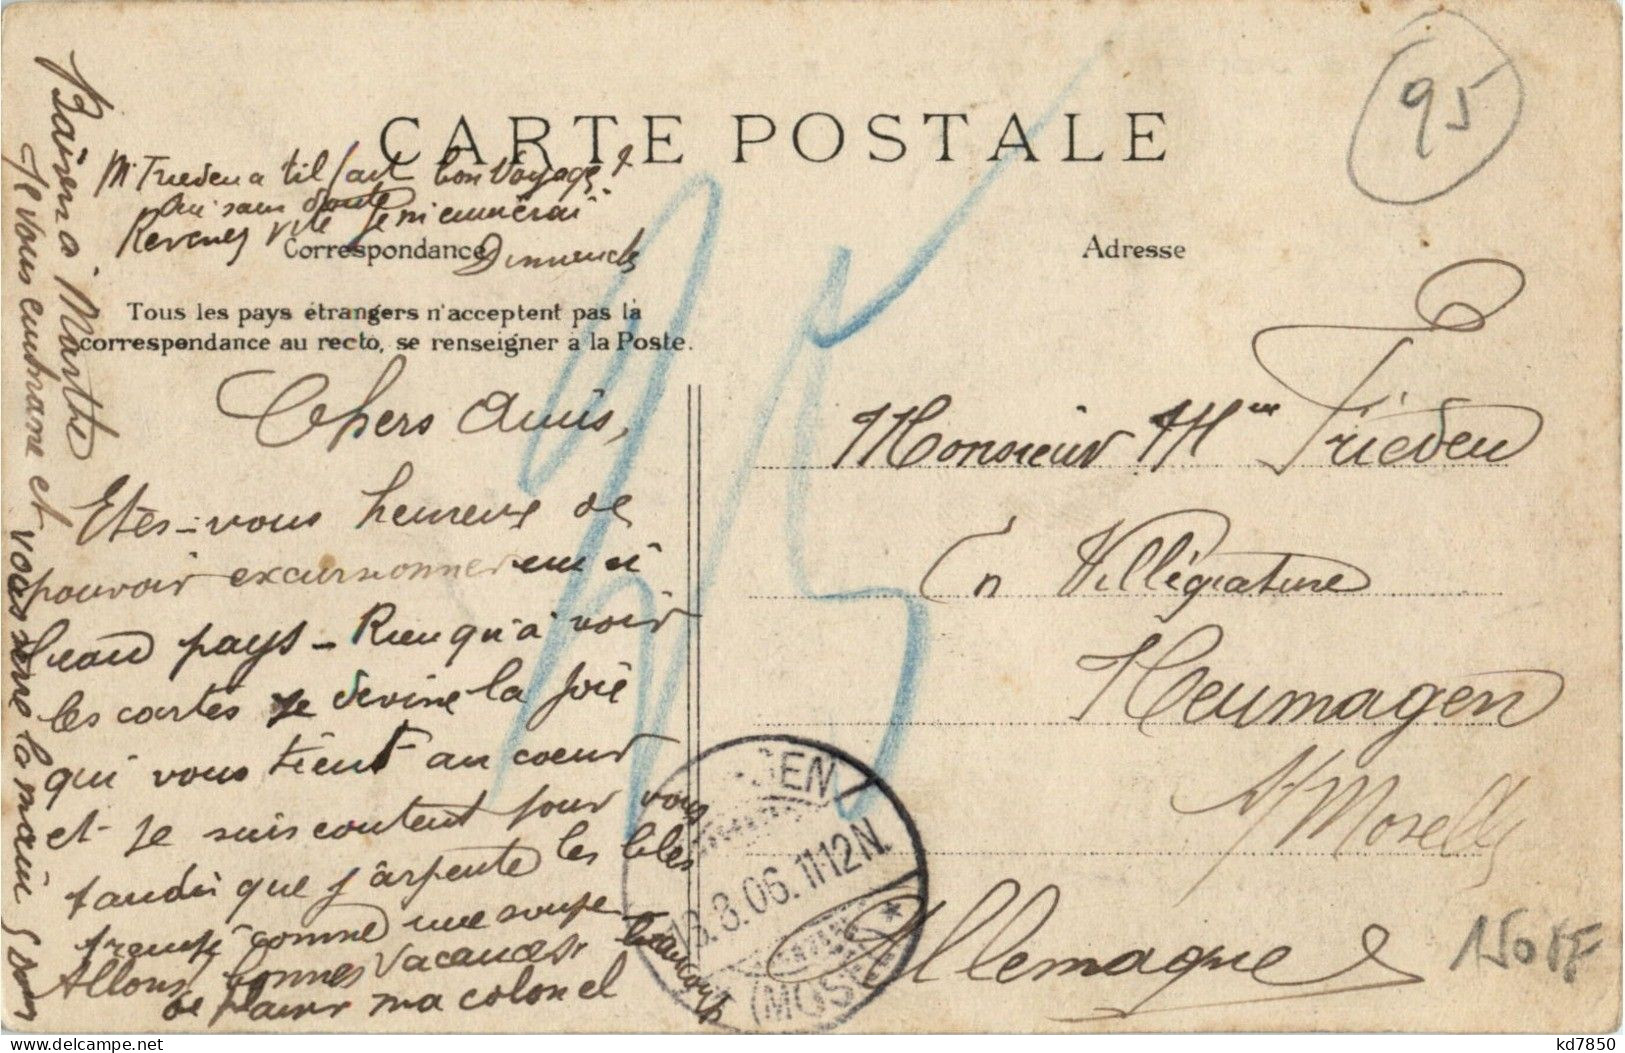 95
CARTE POSTALE
Mr Frieden a til fait bon Voyage?
Oui sans doute
Revenez vite Je m'ennuierai
Correspondance
Adresse
Tous les pays étrangers n'acceptent pas la
correspondance au recto, se renseigner à la Poste.
Chers Amis,
Etês-vous heureux de
pouvoir excursionner en ci
beau pays - Rien qu'à voir
les cartes je devine la joie
qui vous tient au coeur
et je suis content pour vous
tandis que j'arpente les
trempé comme une soupe
Allons, bonnes vacances, beaucoup
de plaisir ma colonel
Baisers à Marthe
Je vous embrasse et vous serre la main
Monsieur Mme Frieden
En Villégiature
Neumagen
s/ Moselle
Allemagne
25
AGEN
8.06.11-12N.
(MOSEL)
150FF
delcampe.net
kd7850